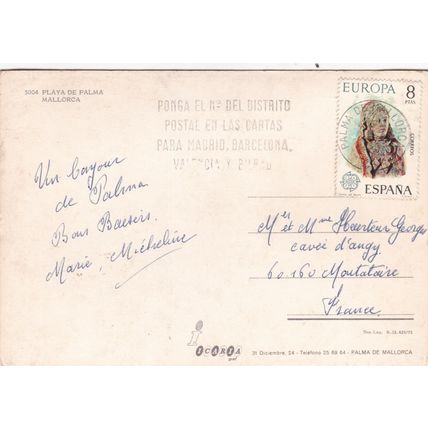 3004 PLAYA DE PALMA
MALLORCA
PONGA EL Nº DEL DISTRITO
POSTAL EN LAS CARTAS
PARA MADRID, BARCELONA,
VALENCIA Y BILBAO
EUROPA 8
PTAS
PALMA DE MALLORCA
CORREOS
CEPT
ESPAÑA
Un bonjour
de Palma
Bons Baisers.
Marie, Micheline
Mer et Mme Heurteur Georges
cavée d'angy
60.160 Montataire
France
ICARIA
31 Diciembre, 24 - Teléfono 25 69 64 - PALMA DE MALLORCA